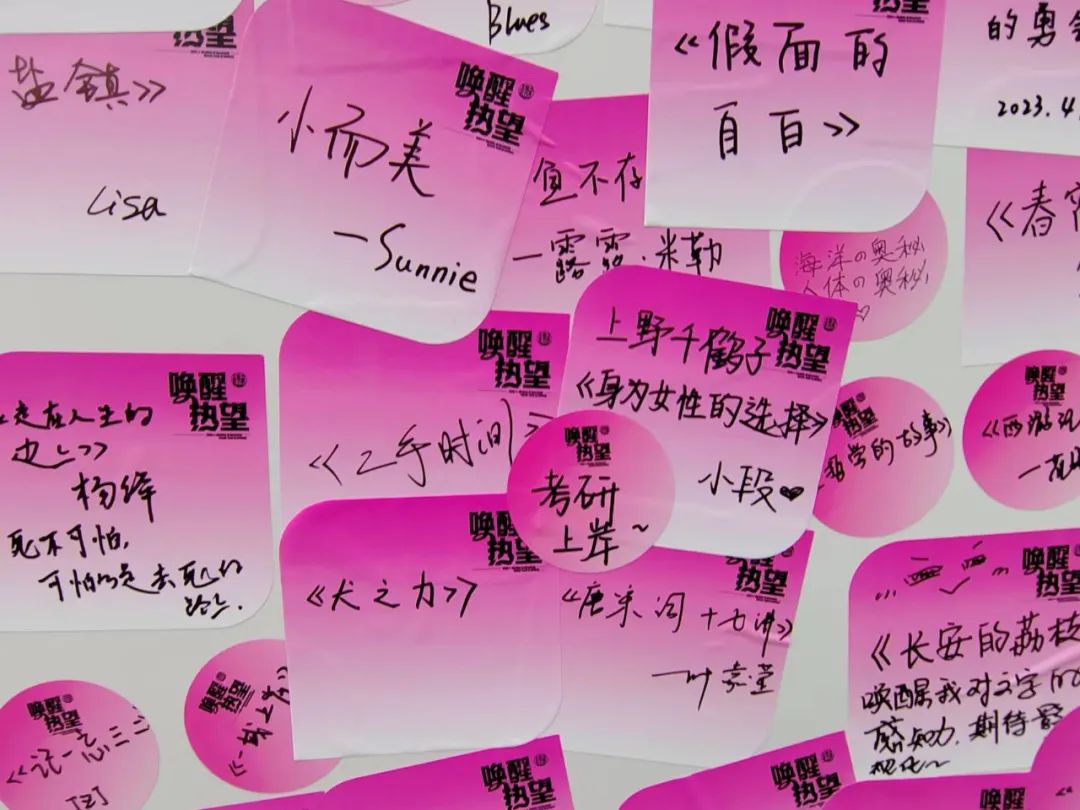 Blues
盐镇》
Lisa
唤醒
热望
小而美
—Sunnie
唤醒
热望
《假面的
自白》
的勇
2023.4
鱼不存
—露露·米勒
海洋の奥秘
人体の奥秘
《春
唤醒
热望
走在人生的
边上》
杨绛
死不可怕,
可怕的是去死的
路上.
唤醒
热望
《二手时间》
唤醒
热望
上野千鹤子
《身为女性的选择》
小段
唤醒
热望
考研
上岸~
唤醒
热望
哲学的故事》
唤醒
热望
《西游记
唤醒
热望
《犬之力》
唤醒
热望
《唐宋词十七讲》
—叶嘉莹
唤醒
热望
《长安的荔枝
唤醒我对文字的
感知力,期待影
视化~
唤醒
热望
唤醒
热望
唤醒
热望
唤醒
热望
唤醒